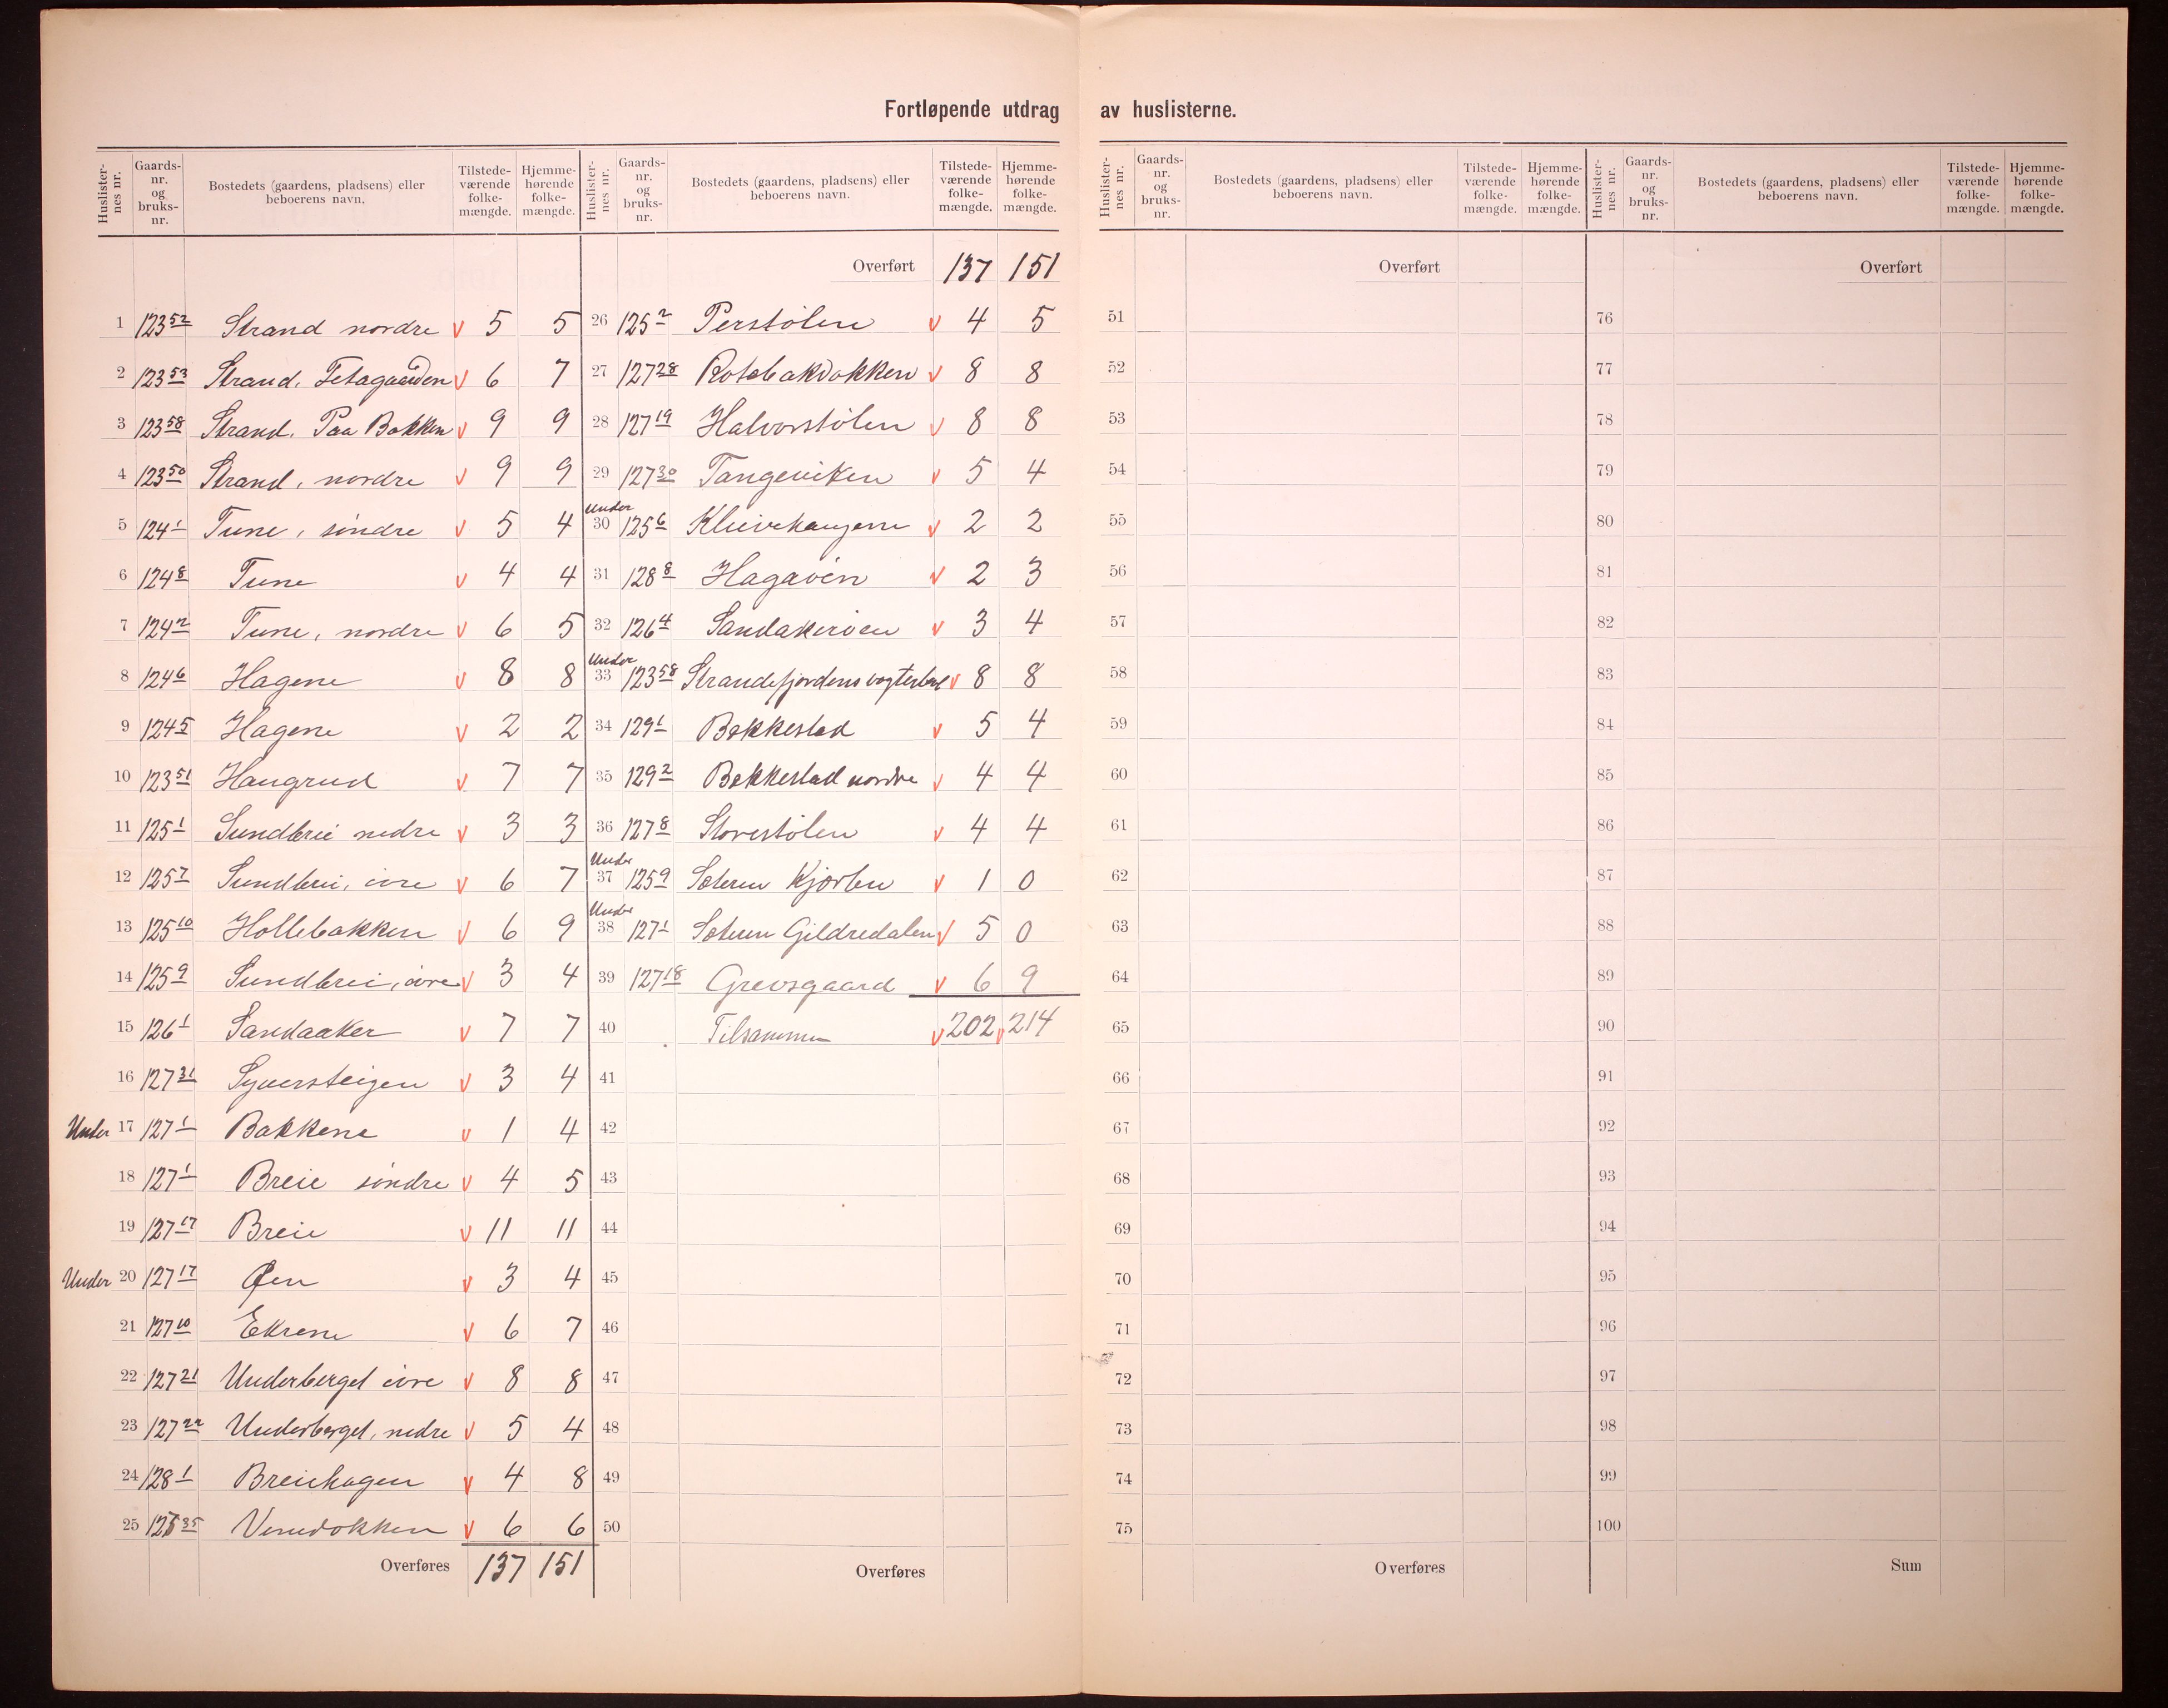 Fortløpende utdrag av huslisterne.
Huslister-nes nr. Gaards-nr. og bruks-nr. Bostedets (gaardens, pladsens) eller beboerens navn. Tilstede-værende folke-mængde. Hjemme-hørende folke-mængde.
1 123 52 Strand nordre v 5 5
2 123 53 Strand, Tetagaarden v 6 7
3 123 58 Strand, Paa Bakken v 9 9
4 123 50 Strand, nordre v 9 9
5 124 1 Tune, söndre v 5 4
6 124 8 Tune v 4 4
7 124 2 Tune, nordre v 6 5
8 124 6 Hagene v 8 8
9 124 5 Hagene v 2 2
10 123 51 Haugrud v 7 7
11 125 1 Sundbrei nedre v 3 3
12 125 7 Sundbrei, övre v 6 7
13 125 10 Hollebakken v 6 9
14 125 9 Sundbrei, övre v 3 4
15 126 1 Sandaaker v 7 7
16 127 31 Syversteigen v 3 4
Under 17 127 1 Bakkene v 1 4
18 127 1 Breie söndre v 4 5
19 127 17 Breie v 11 11
Under 20 127 17 Øen v 3 4
21 127 10 Ekrene v 6 7
22 127 21 Underberget övre v 8 8
23 127 22 Underberget, nedre v 5 4
24 128 1 Breiehagen v 4 8
25 35 v 6 6
Overføres 137 151
Huslister-nes nr. Gaards-nr. og bruks-nr. Bostedets (gaardens, pladsens) eller beboerens navn. Tilstede-værende folke-mængde. Hjemme-hørende folke-mængde.
Overført 137 151
26 125 2 Perstölen v 4 5
27 127 28 Rotebakdokken v 8 8
28 127 19 Halvorstölen v 8 8
29 127 30 Tangeviken v 5 4
Under
30 125 6 Kleivehaugene v 2 2
31 128 8 Hagaöen v 2 3
32 126 4 Sandakeröen v 3 4
Under
33 123 58 Strandefjordens v 8 8
34 129 1 Bakkestad v 5 4
35 129 2 Bakkestad nordre v 4 4
36 127 8 Storestölen v 4 4
Under
37 125 9 Sæteren v 1 0
Under
38 127 1 Sæteren Gildredalen v 5 0
39 127 18 Grevsgaard v 6 9
40 Tilsammen v 202 v 214
41
42
43
44
45
46
47
48
49
50
Overføres
Huslister-nes nr. Gaards-nr. og bruks-nr. Bostedets (gaardens, pladsens) eller beboerens navn. Tilstede-værende folke-mængde. Hjemme-hørende folke-mængde.
Overført
51
52
53
54
55
56
57
58
59
60
61
62
63
64
65
66
67
68
69
70
71
72
73
74
75
Overføres
Huslister-nes nr. Gaards-nr. og bruks-nr. Bostedets (gaardens, pladsens) eller beboerens navn. Tilstede-værende folke-mængde. Hjemme-hørende folke-mængde.
Overført
76
77
78
79
80
81
82
83
84
85
86
87
88
89
90
91
92
93
94
95
96
97
98
99
100
Sum